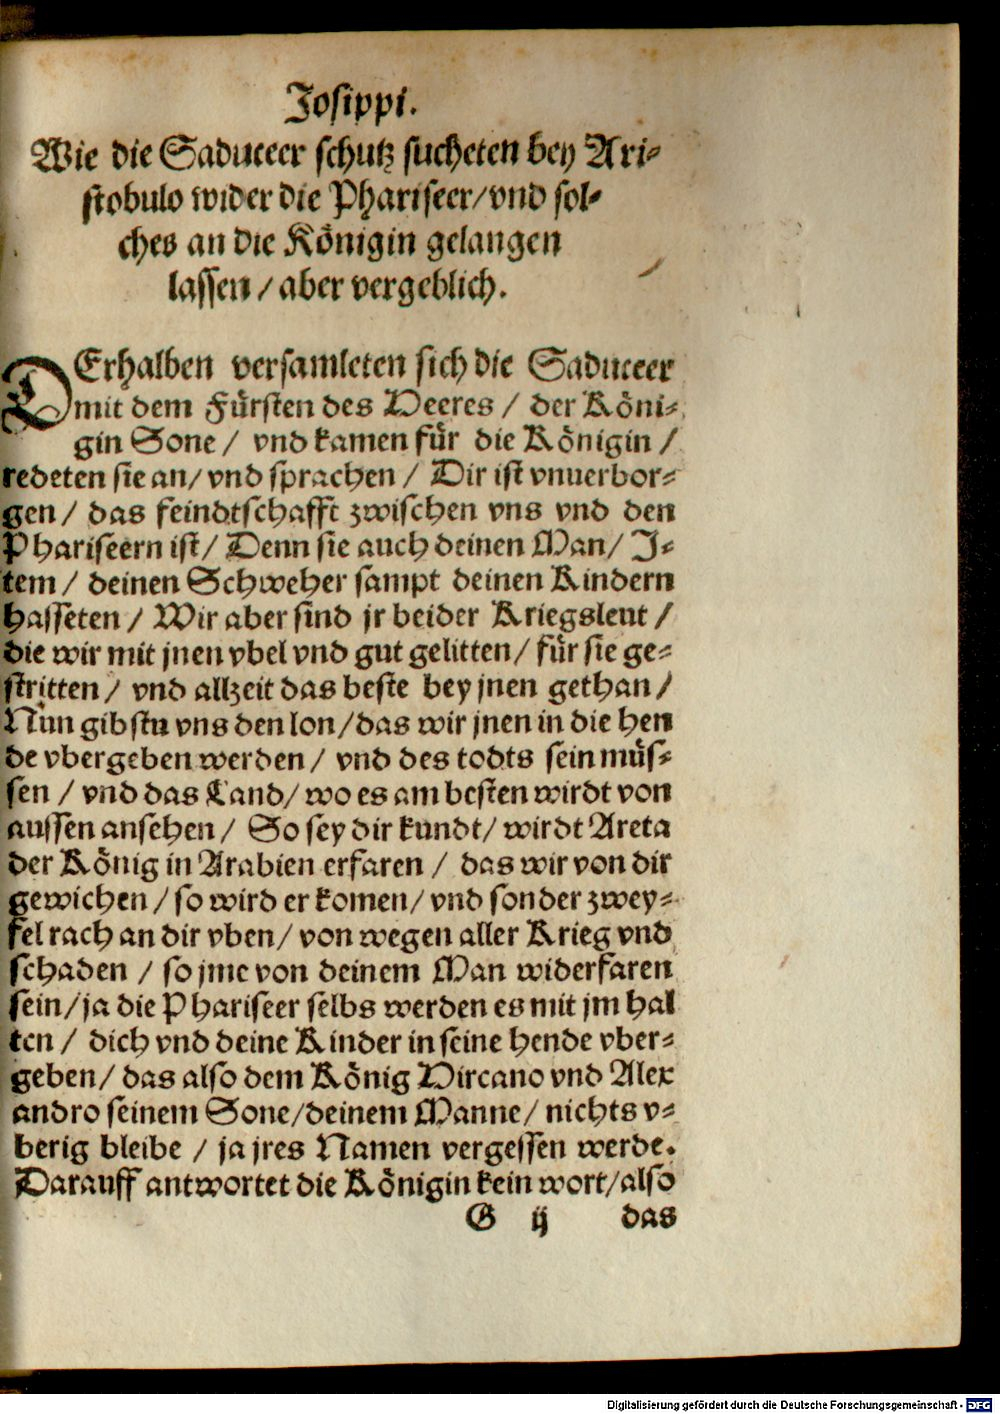 Josippi.
Wie die Saduceer schutz sucheten bey Ari⸗
stobulo wider die Phariseer/vnd sol⸗
ches an die Königin gelangen
lassen/aber vergeblich.
DErhalben versamleten sich die Saduceer
mit dem Fürsten des Heeres/ der Köni⸗
gin Sone/ vnd kamen für die Königin/
redeten sie an/vnd sprachen/ Dir ist vnuerbor⸗
gen/ das feindtschafft zwischen vns vnd den
Phariseern ist/ Denn sie auch deinen Man/ J⸗
tem/ deinen Schweher sampt deinen Kindern
hasseten/ Wir aber sind jr beider Kriegsleut/
die wir mit jnen vbel vnd gut gelitten/ für sie ge⸗
stritten/ vnd allzeit das beste bey jnen gethan/
Nun gibstu vns den lon/das wir jnen in die hen
de vbergeben werden/ vnd des todts sein müs⸗
sen/ vnd das Land/wo es am besten wirdt von
aussen ansehen/ So sey dir kundt/ wirdt Areta
der König in Arabien erfaren/ das wir von dir
gewichen/so wird er komen/vnd sonder zwey⸗
fel rach an dir vben/ von wegen aller Krieg vnd
schaden/ so jme von deinem Man widerfaren
sein/ja die Phariseer selbs werden es mit jm hal
ten/ dich vnd deine Kinder in seine hende vber⸗
geben/ das also dem König Hircano vnd Alex
andro seinem Sone/deinem Manne/ nichts v⸗
berig bleibe/ ja jres Namen vergessen werde.
Darauff antwortet die Königin kein wort/also
G ij das
Digitalisierung gefördert durch die Deutsche Forschungsgemeinschaft - DFG